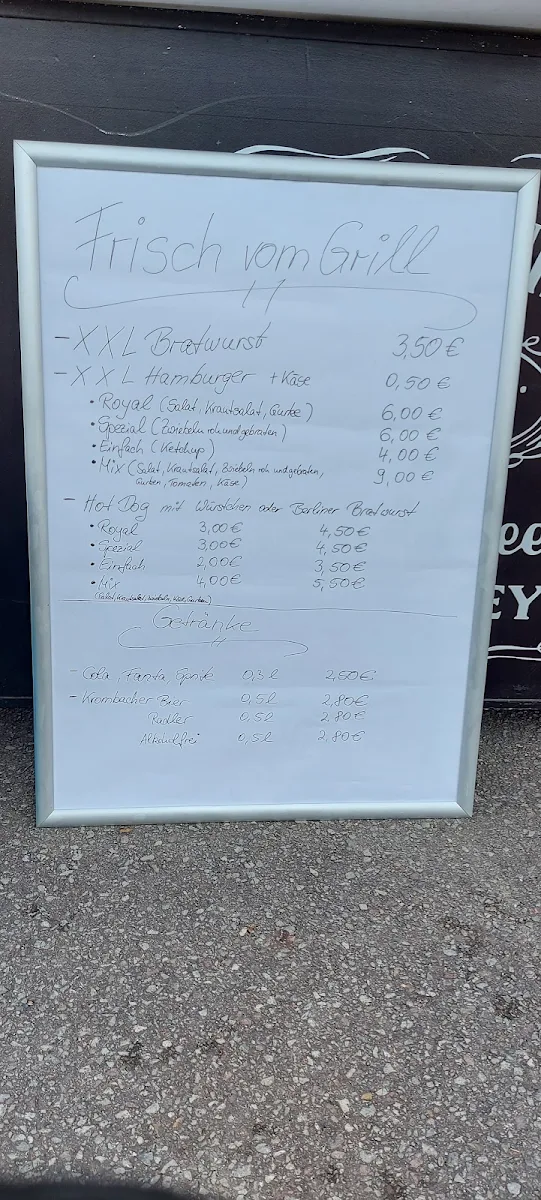 Frisch vom Grill
- XXL Bratwurst 3,50 €
- XXL Hamburger + Käse 0,50 €
• Royal (Salat, Krautsalat, Gurke) 6,00 €
• Spezial (Zwiebeln roh und gebraten) 6,00 €
• Einfach (Ketchup) 4,00 €
• Mix (Salat, Krautsalat, Zwiebeln roh und gebraten, 9,00 €
Gurken, Tomaten, Käse)
- Hot Dog mit Würstchen oder Berliner Bratwurst
• Royal 3,00 € 4,50 €
• Spezial 3,00 € 4,50 €
• Einfach 2,00 € 3,50 €
• Mix 4,00 € 5,50 €
(Salat, Krautsalat, Zwiebeln, Gurken)
Getränke
- Cola, Fanta, Sprite 0,3 l 2,50 €
- Krombacher Bier 0,5 l 2,80 €
Radler 0,5 l 2,80 €
Alkoholfrei 0,5 l 2,80 €